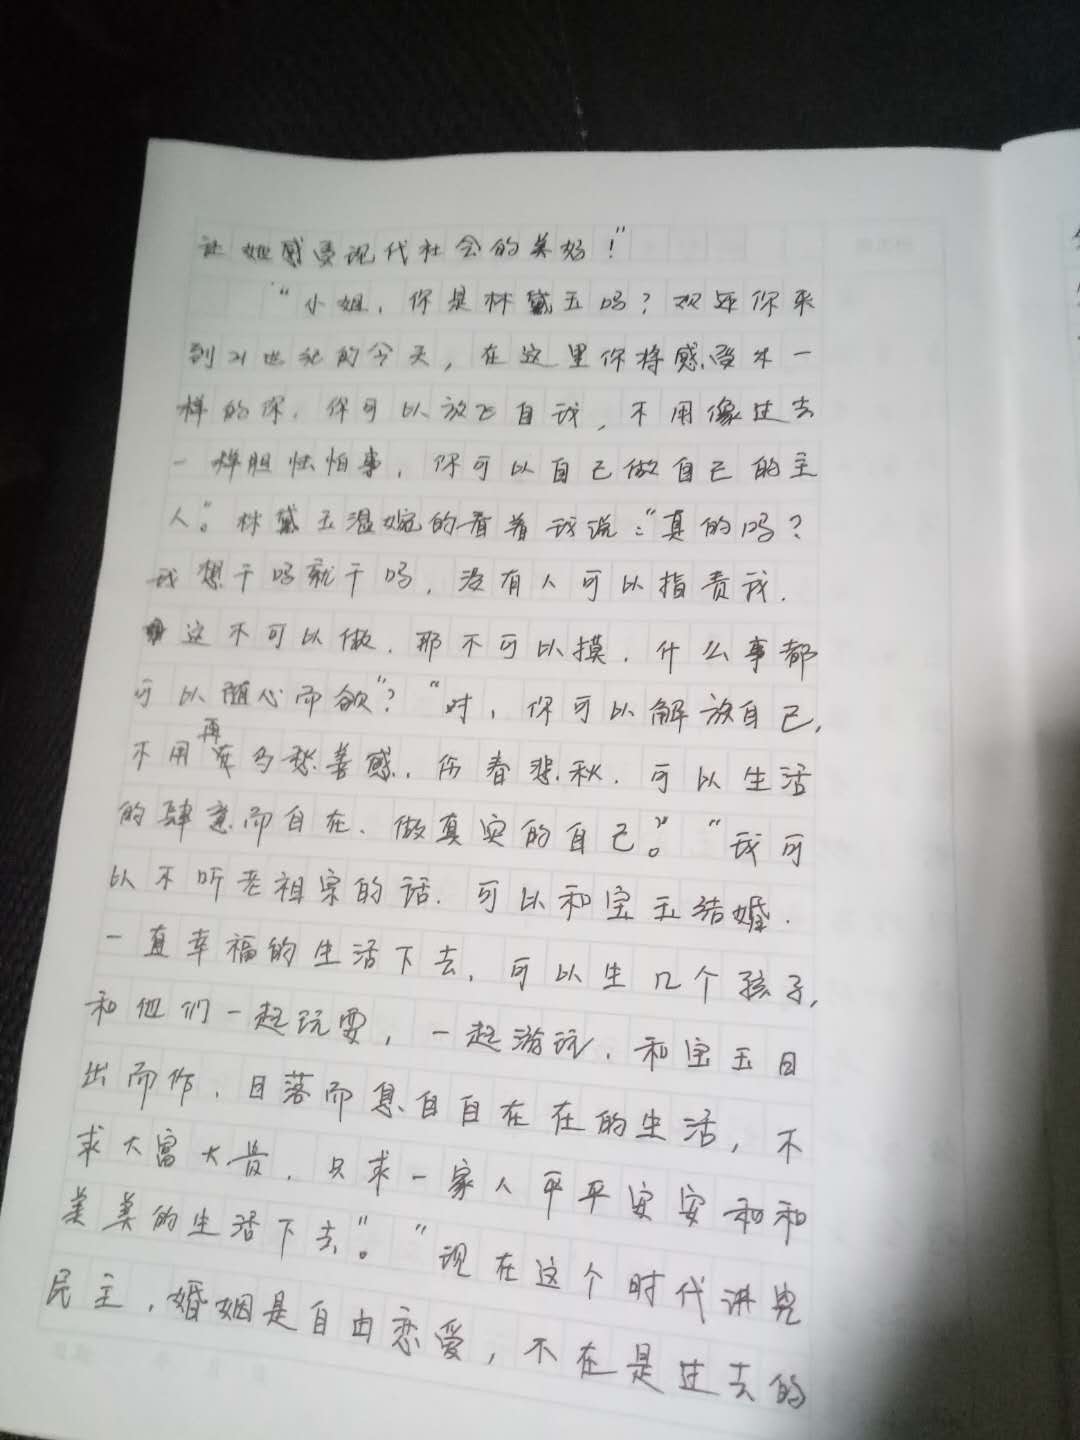 让她感受现代社会的美好！"
"小姐，你是林黛玉吗？欢迎你来
到21世纪的今天，在这里你将感受不一
样的你，你可以放飞自我，不用像过去
一样胆怯怕事，你可以自己做自己的主
人"。林黛玉温婉的看着我说："真的吗？
我想干吗就干吗，没有人可以指责我．
这不可以做．那不可以摸．什么事都
可以随心而欲"？"对，你可以解放自己，
不用再多愁善感．伤春悲秋．可以生活
的肆意而自在、做真实的自己。""我可
以不听老祖宗的话．可以和宝玉结婚．
一直幸福的生活下去，可以生几个孩子，
和他们一起玩耍，一起游玩，和宝玉日
出而作，日落而息自自在在的生活，不
求大富大贵，只求一家人平平安安和和
美美的生活下去"。"现在这个时代讲究
民主，婚姻是自由恋爱，不在是过去的